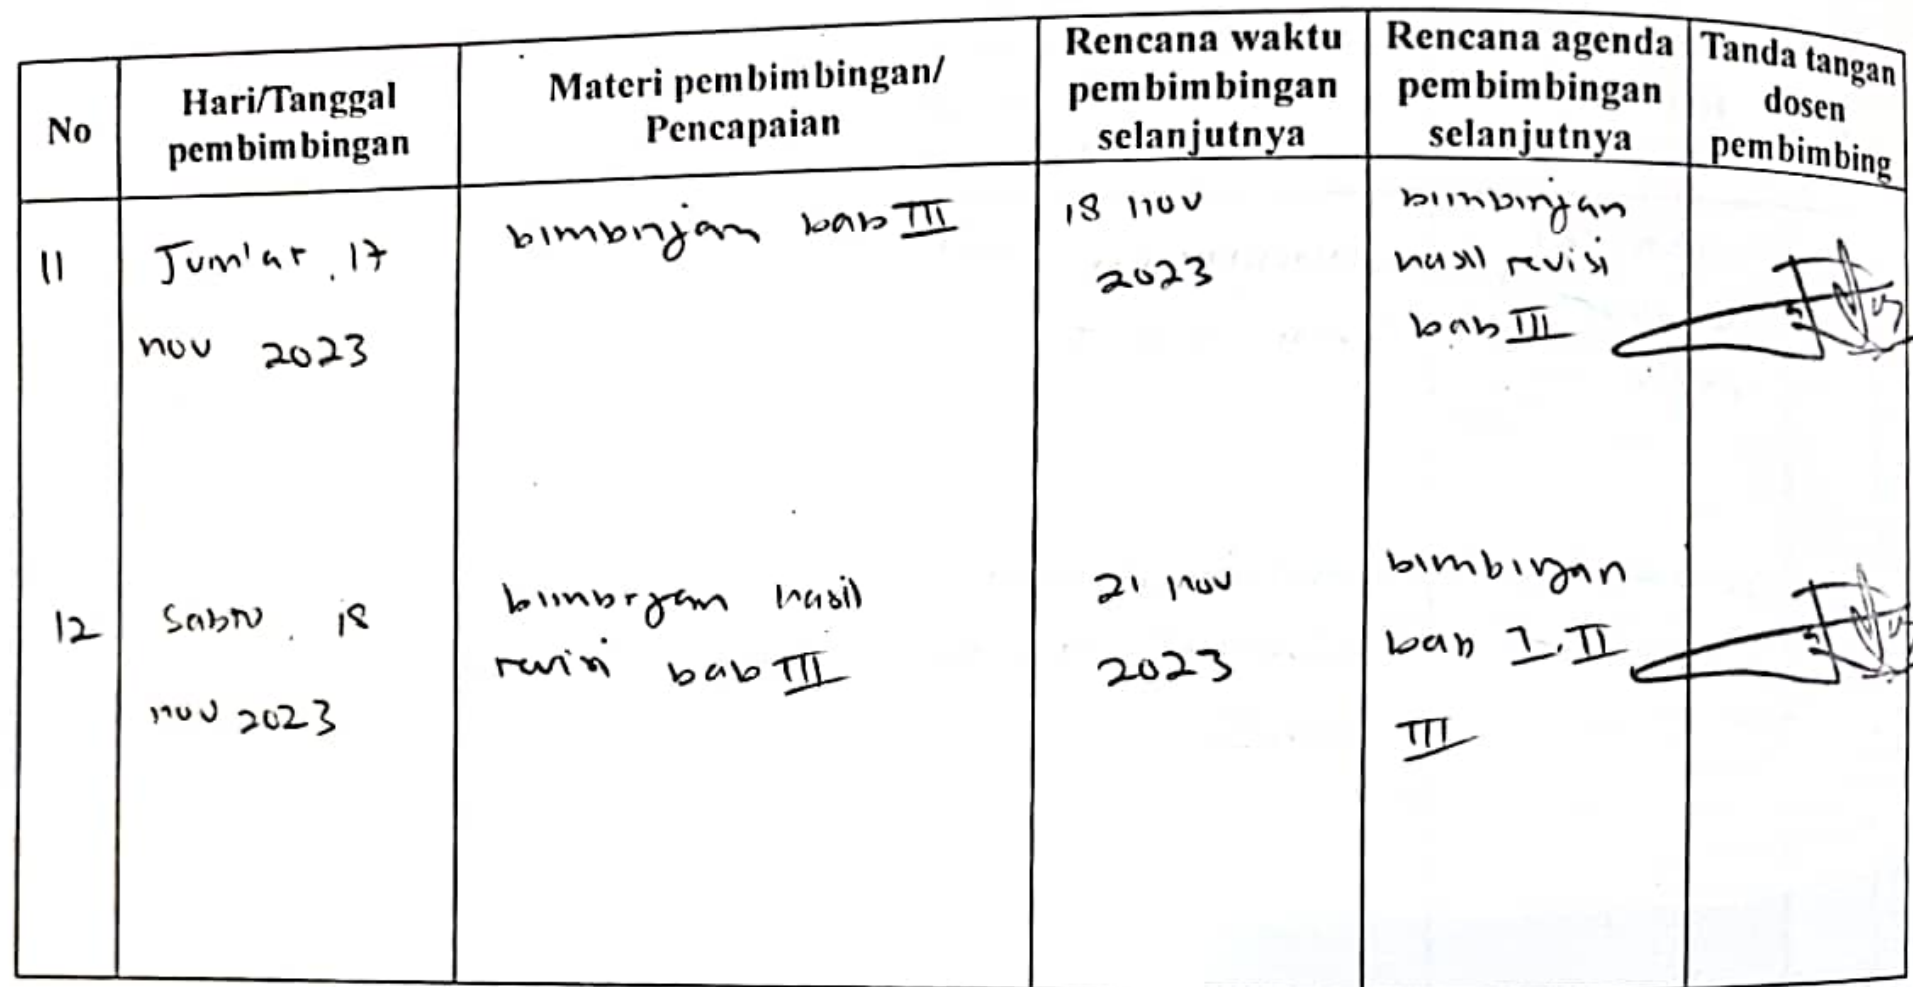 No
Hari/Tanggal
pembimbingan
Materi pembimbingan/
Pencapaian
Rencana waktu
pembimbingan
selanjutnya
Rencana agenda
pembimbingan
selanjutnya
Tanda tangan
dosen
pembimbing
11
Jum'at, 17
nov 2023
bimbingan bab III
18 nov
2023
bimbingan
hasil revisi
bab III
12
Sabtu, 18
nov 2023
bimbingan hasil
revisi bab III
21 nov
2023
bimbingan
bab I, II
III